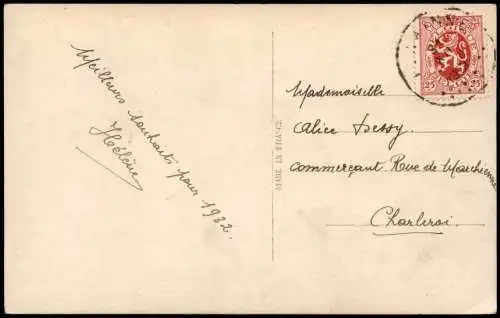 Meilleurs souhaits pour 1932.
Hélène
MADE IN FRANCE
25 25
Mademoiselle
Alice Dessy
Commerçant Rue de Marchienne
Charleroi